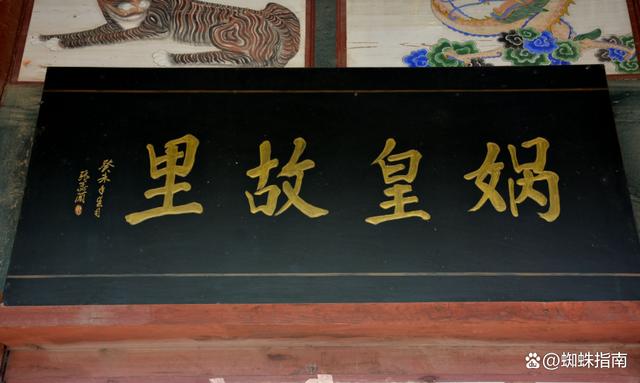 娲皇故里
癸未年
@蜘蛛指南